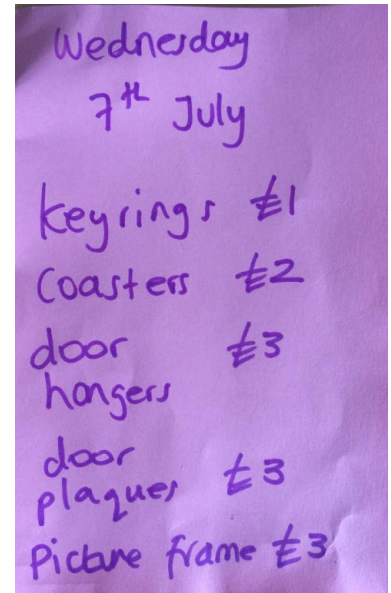 Wednesday
7th July
keyrings £1
Coasters £2
door £3
hangers
door
plaques £3
Picture frame £3